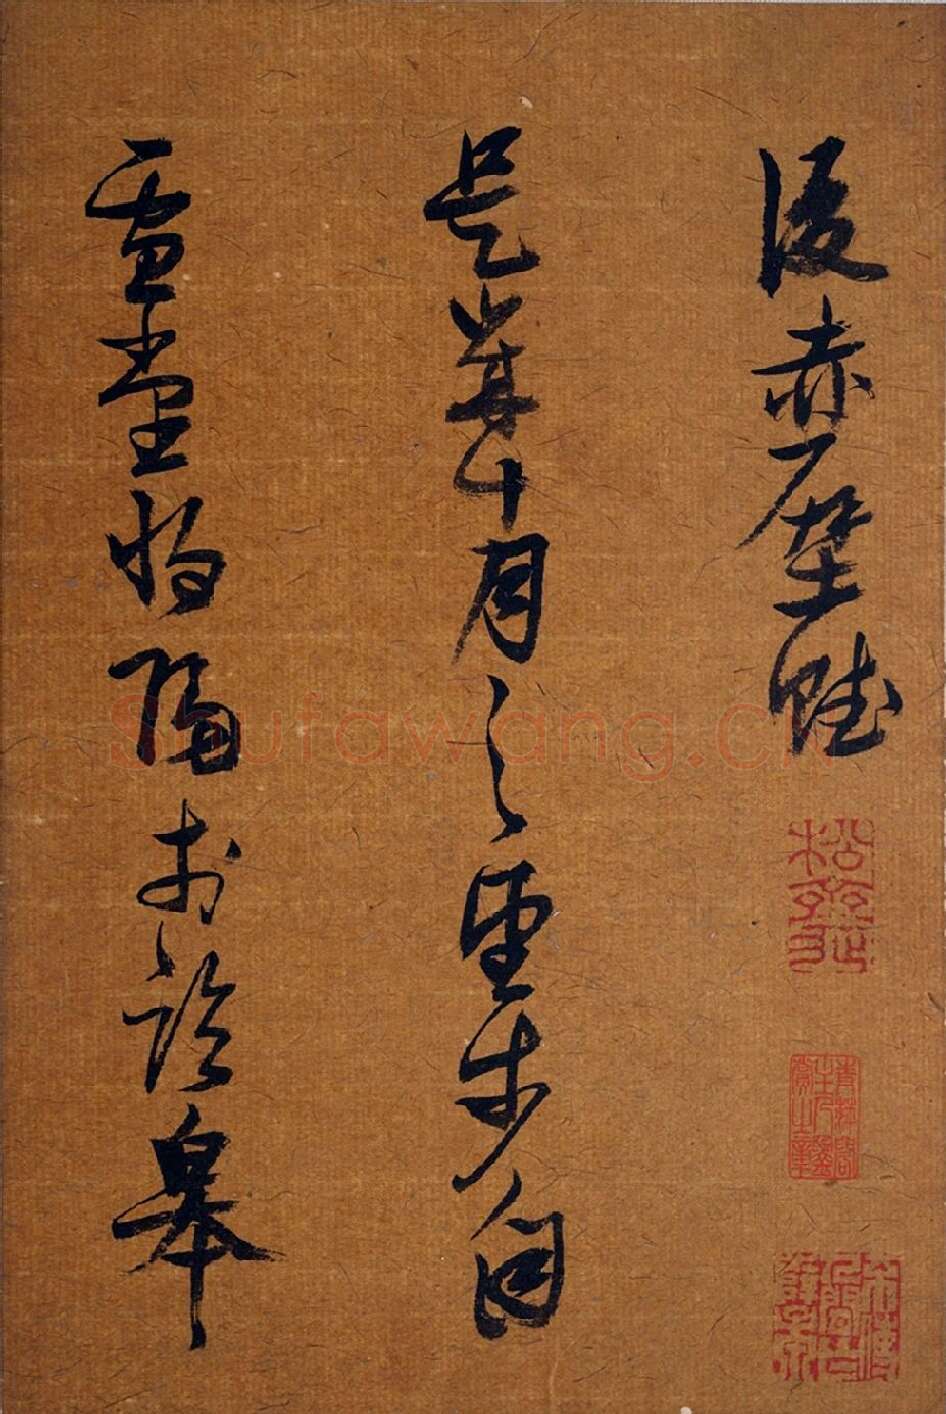 後赤壁賦
是歲十月之望步自
雪堂將歸於臨皋
Shufawang.cn